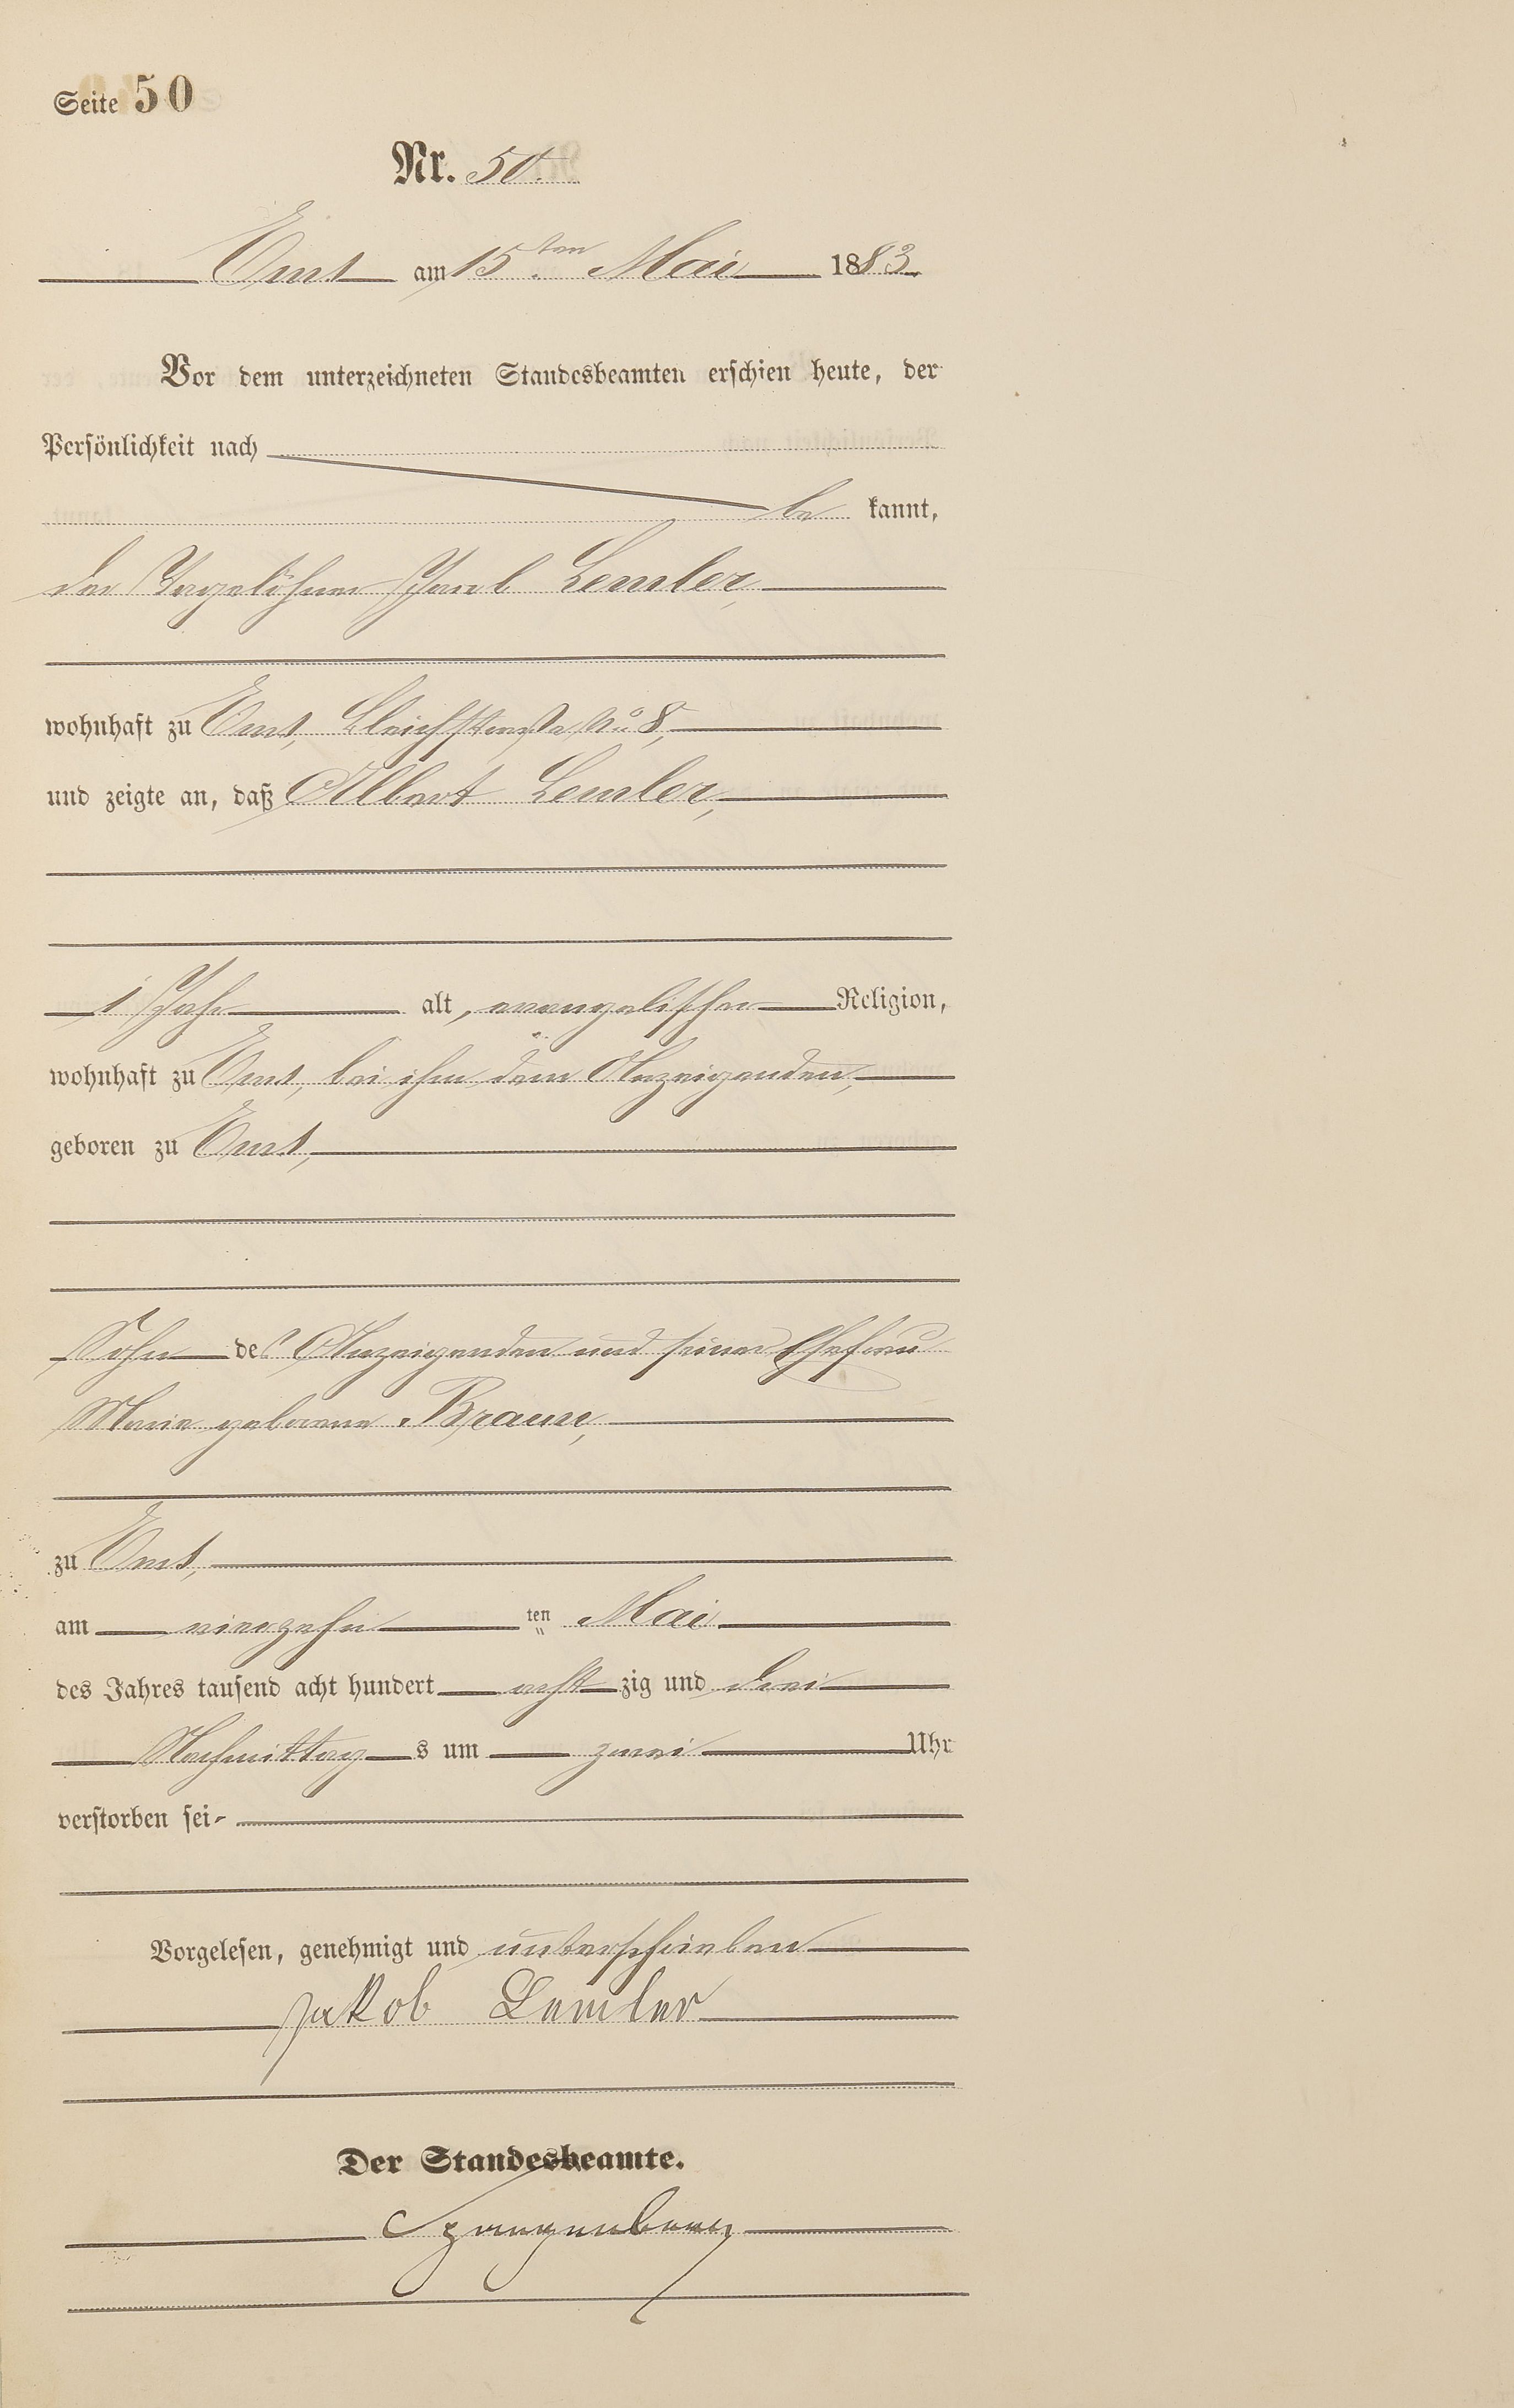 Seite 50
Nr. 50.
Ems am 15ten Mai 1883.
Vor dem unterzeichneten Standesbeamten erschien heute, der
Persönlichkeit nach
be kannt,
der Tagelöhner Jacob Lemler,
wohnhaft zu Ems, Bleichstraße No 8,
und zeigte an, daß Albert Lemler,
1 Jahr alt, evangelischer Religion,
wohnhaft zu Ems, bei ihm dem Anzeigenden,
geboren zu Ems,
Sohn des Anzeigenden und seiner Ehefrau
Marie geborene Braun,
zu Ems,
am vierzehn ten Mai
des Jahres tausend acht hundert acht zig und drei
Nachmittag s um zwei Uhr
verstorben sei
Vorgelesen, genehmigt und unterschrieben
Jakob Lemler
Der Standesbeamte.
Spangenberg